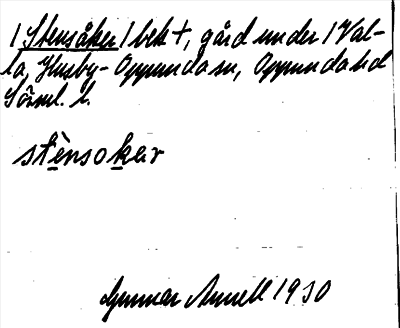 1 Stensåker 1 bek †, gård under 1 Val-
la, Husby-Oppunda sn, Oppunda hd
Södml. l.
stènsokar
Gunnar Annell 1930